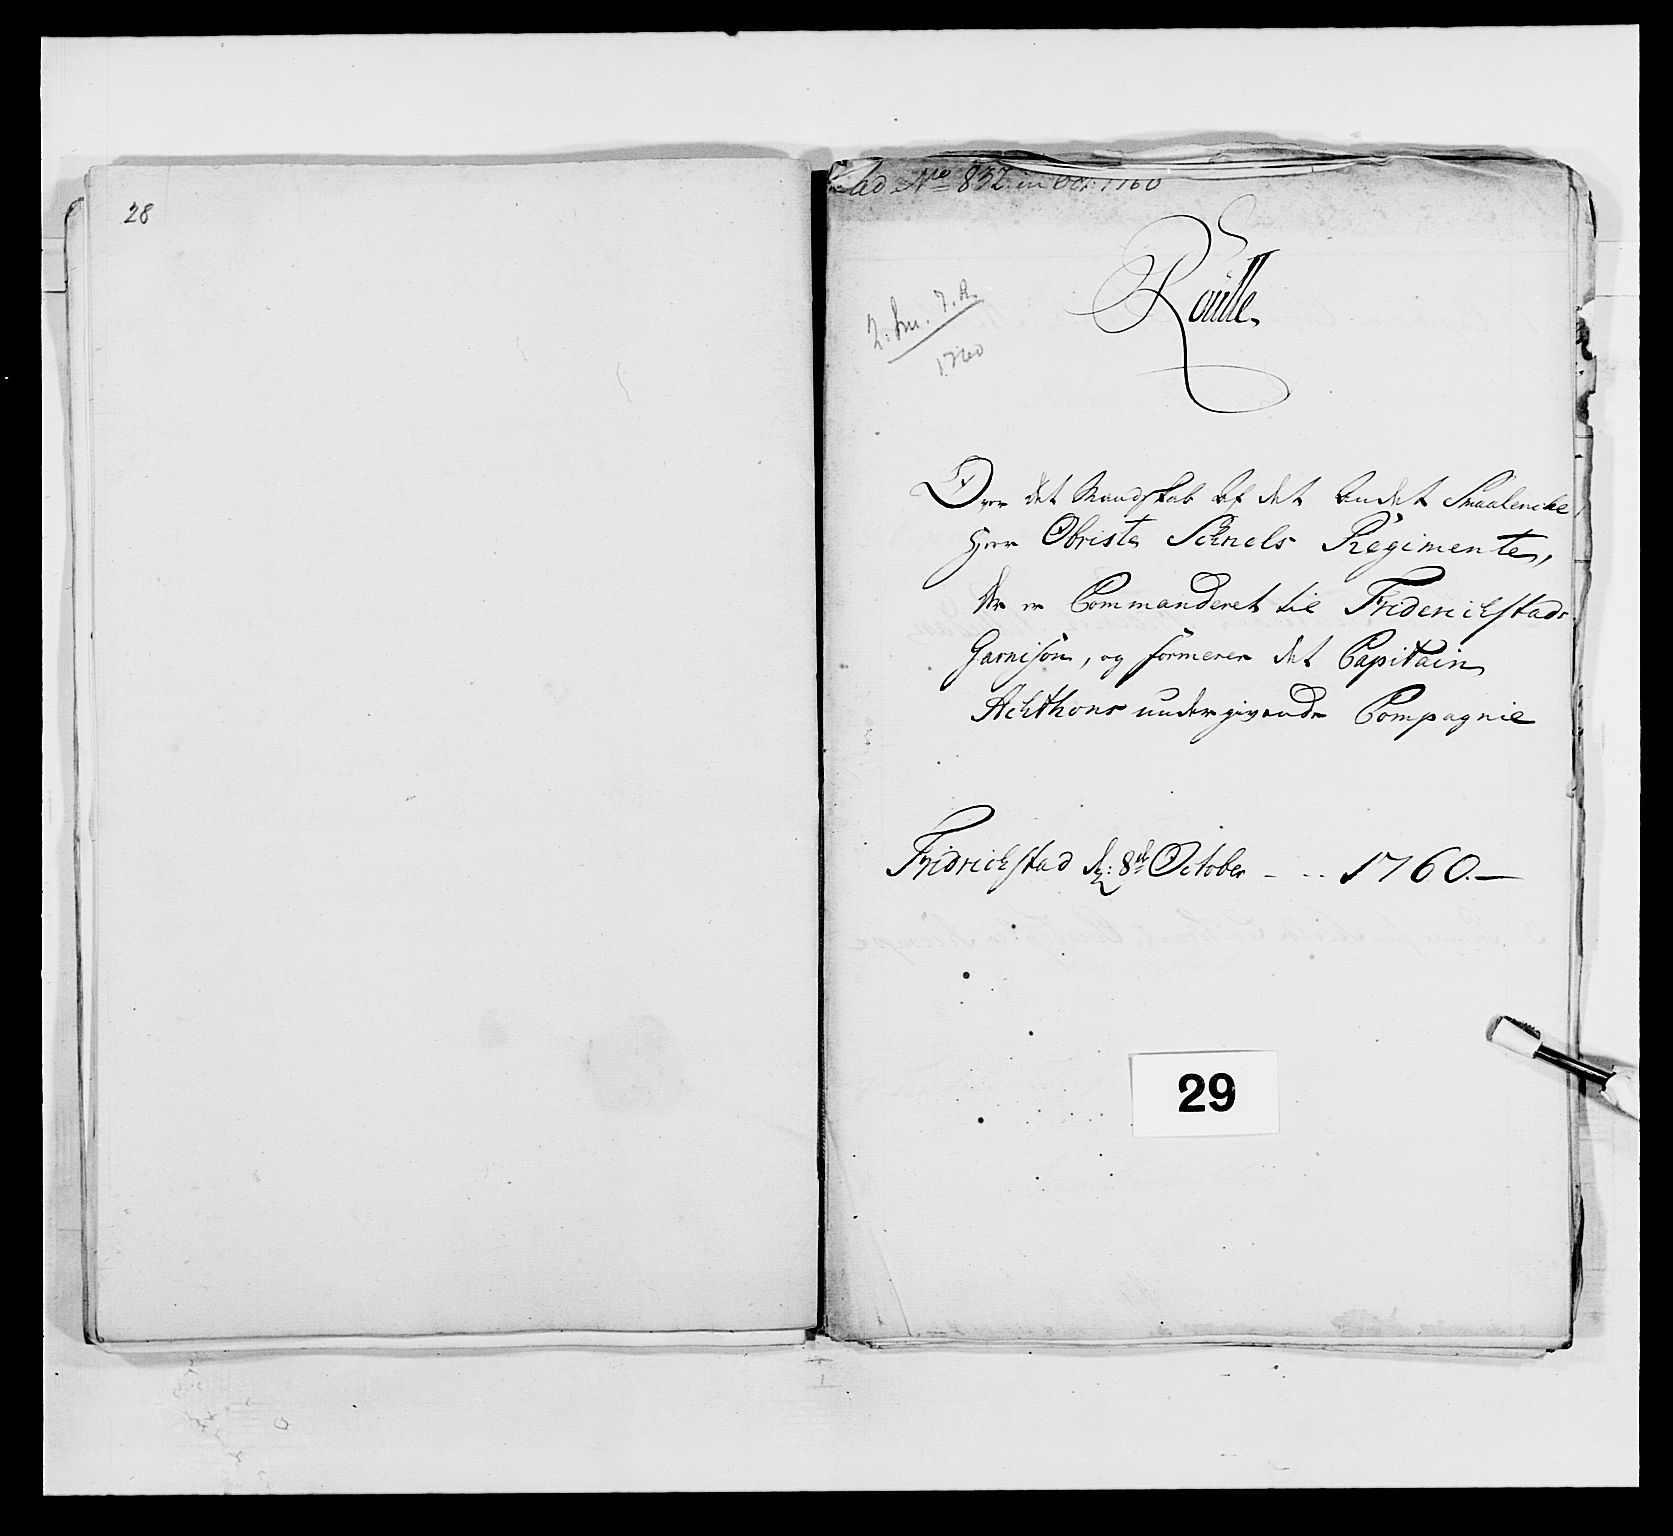 28
ad No 832 in Oct: 1760
Roulle,
2. Sm. I. R.
1760
Over det Mandskab af det Andet Smaalenske
Herr Obriste Schnels Regimente,
der er Commanderet til Friderichstads
Garnison, og formerer det Capitain
Achthons undergivende Compagnie
Fridrichstad d: 8de October - - - 1760. —
29